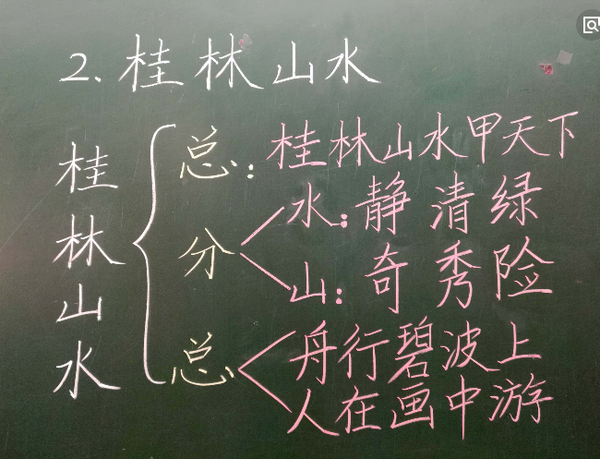 2. 桂林山水
桂林山水
总: 桂林山水甲天下
分
水: 静 清 绿
山: 奇 秀 险
总
舟行碧波上
人在画中游